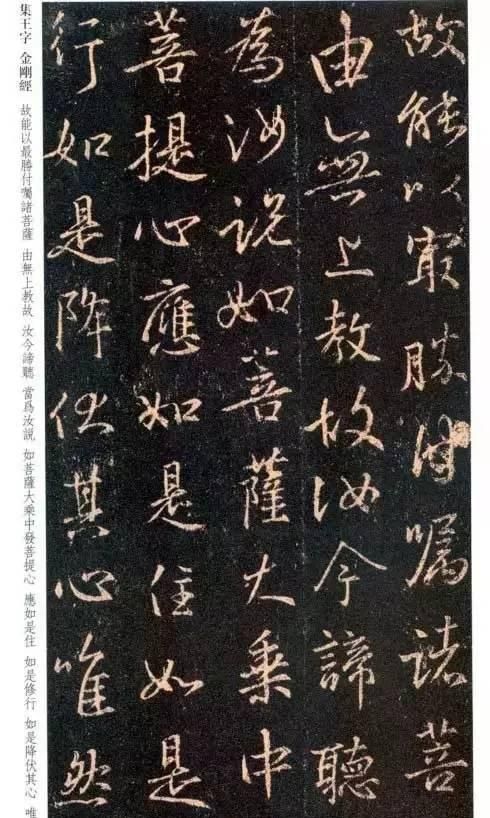 故能以最勝付囑諸菩
由無上教故汝今諦聽
為汝説如菩薩大乘中
菩提心應如是住如是
行如是降伏其心唯然
集王字 金剛經 故能以最勝付囑諸菩薩 由無上教故 汝今諦聽 當爲汝説 如菩薩大乘中發菩提心 應如是住 如是修行 如是降伏其心 唯